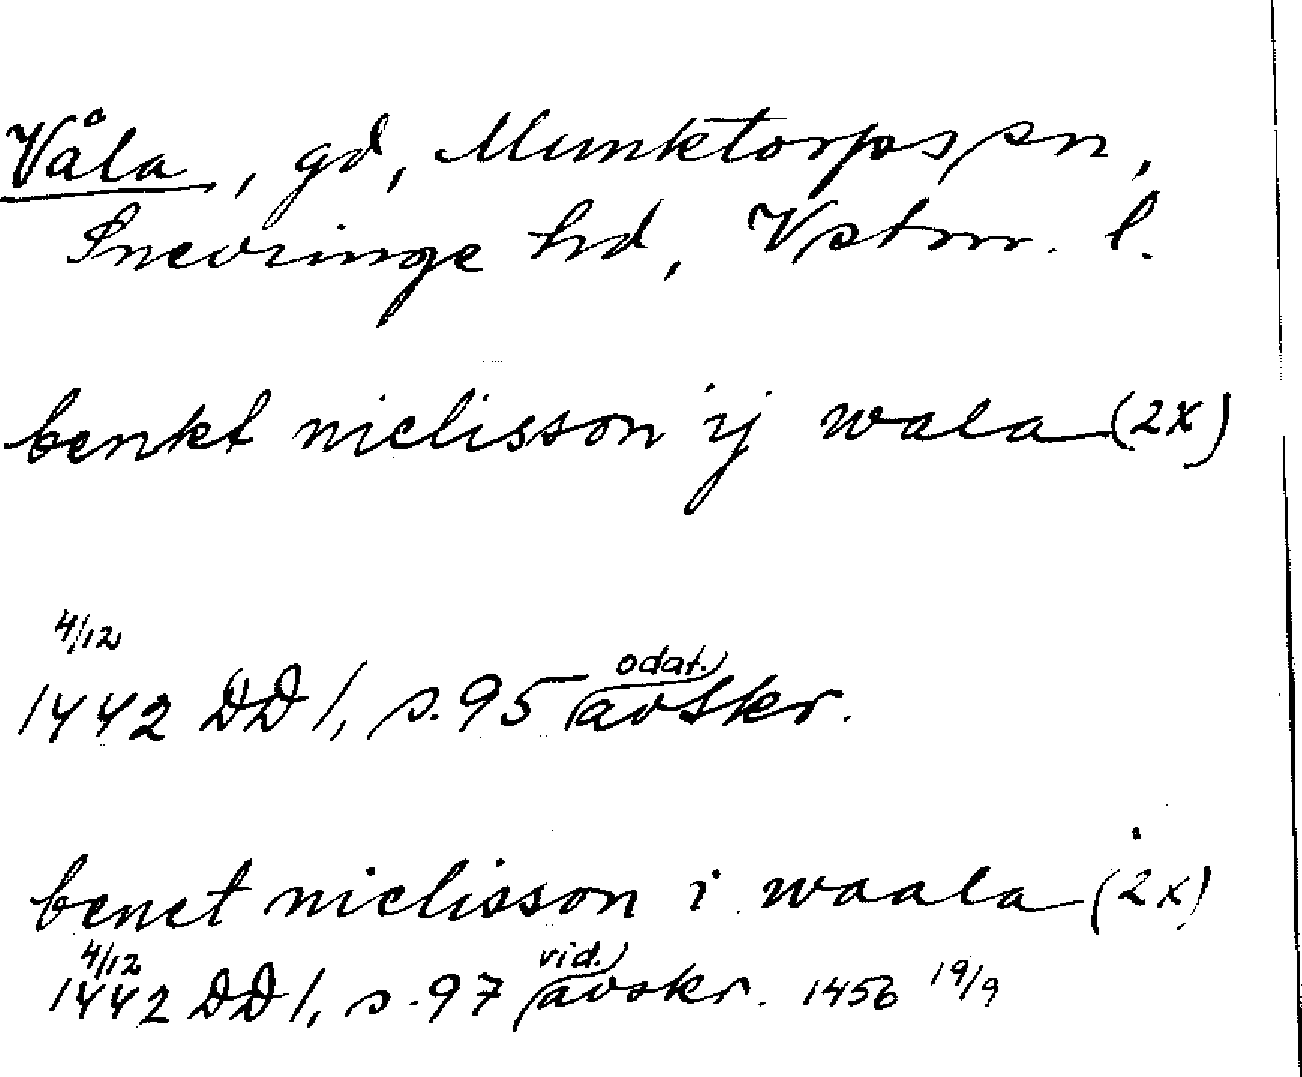 Våla, gd, Munktorps sn,
Snevringe hd, Vstm. l.
benkt niclisson ij wala (2x)
4/12
odat.
1442 DD 1, s. 95 avskr.
benct niclisson i waala (2x)
4/12 vid.
1442 DD 1, s. 97 avskr. 1456 19/9